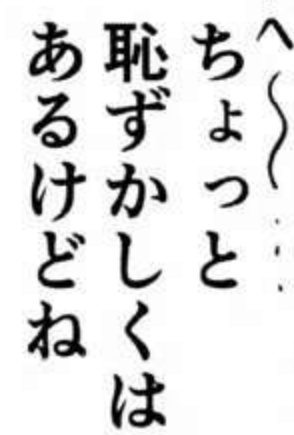 へ〜…
ちょっと
恥ずかしくは
あるけどね